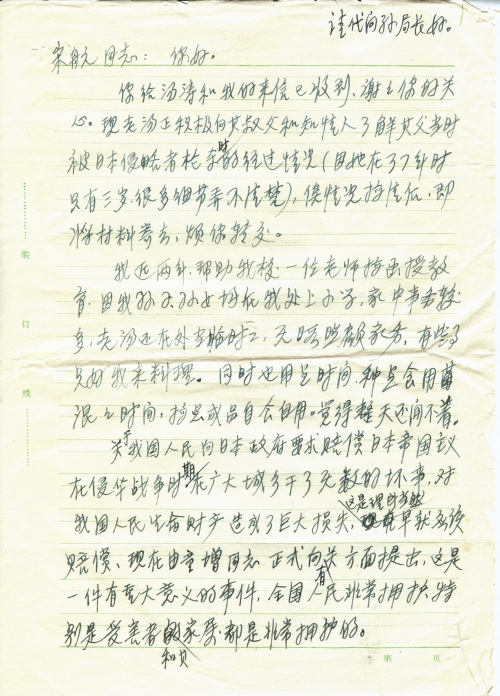 请代向孙局长好。
宋航同志: 你好。
你给汤涛和我的来信已收到,谢谢你的关
心。现老汤正积极向其叔父和知情人了解其父当时
被日本侵略者枪杀时的经过情况(因她在37年时
只有三岁,很多细节弄不清楚),俟情况搞清后,即
将材料寄去,烦你转交。
我近两年,帮助我校一位老师搞函授教
育,因我孙子孙女均在我处上小学,家中事务较
多,老汤还在外当临时工,无暇照顾家务,有些事
只好我来料理。同时也用点时间,种点食用菌
混混时间,搞点成品自食自用。觉得整天还闲不着。
关于我国人民向日本政府要求赔偿日本帝国主义
在侵华战争时期在广大城乡干了无数的坏事,对
我国人民生命财产造成了巨大损失,这是理所当然 早就应该
赔偿,现在由童增同志正式向有关方面提出,这是
一件有重大意义的事件,全国人民非常拥护,特
别是受害者和其家属,都是非常拥护的。
装
订
线
第 页